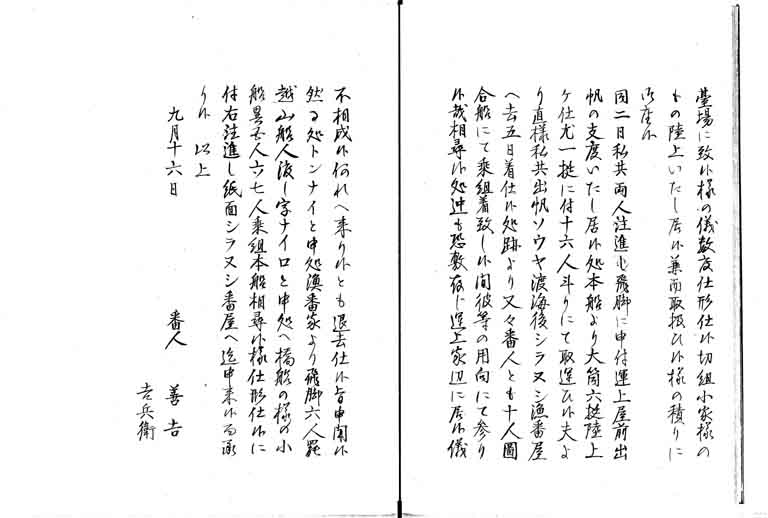 臺場に致候様の儀數度仕形仕候切組小家様の
もの陸上いたし居候兼而取扱ひ候様の積りに
御座候
同二日私共両人注進も飛脚に申付運上屋前出
帆の支度いたし居候処本船より大筒六挺陸上
ケ仕尤一挺に付十六人斗りにて取運ひ候夫よ
り直様私共出帆ソウヤ渡海後シラヌシ漁番屋
へ去五日着仕候処跡より又々番人とも十人圖
合船にて乗組着致し候間彼等の用向にて参り
候哉相尋候処迚も恐敷存し運上家辺に居候儀
不相成候何れへ来り候とも退去仕候旨申聞候
然る処トンナイと申処漁番家より飛脚六人罷
越山船人渡し字ナイロと申処へ橋船の様の小
船異国人六七人乗組本船相尋候様仕形仕候に
付右注進し紙面シラヌシ番屋へ迄申来候而承
り候 以上
九月十六日
番人 善吉
吉兵衛